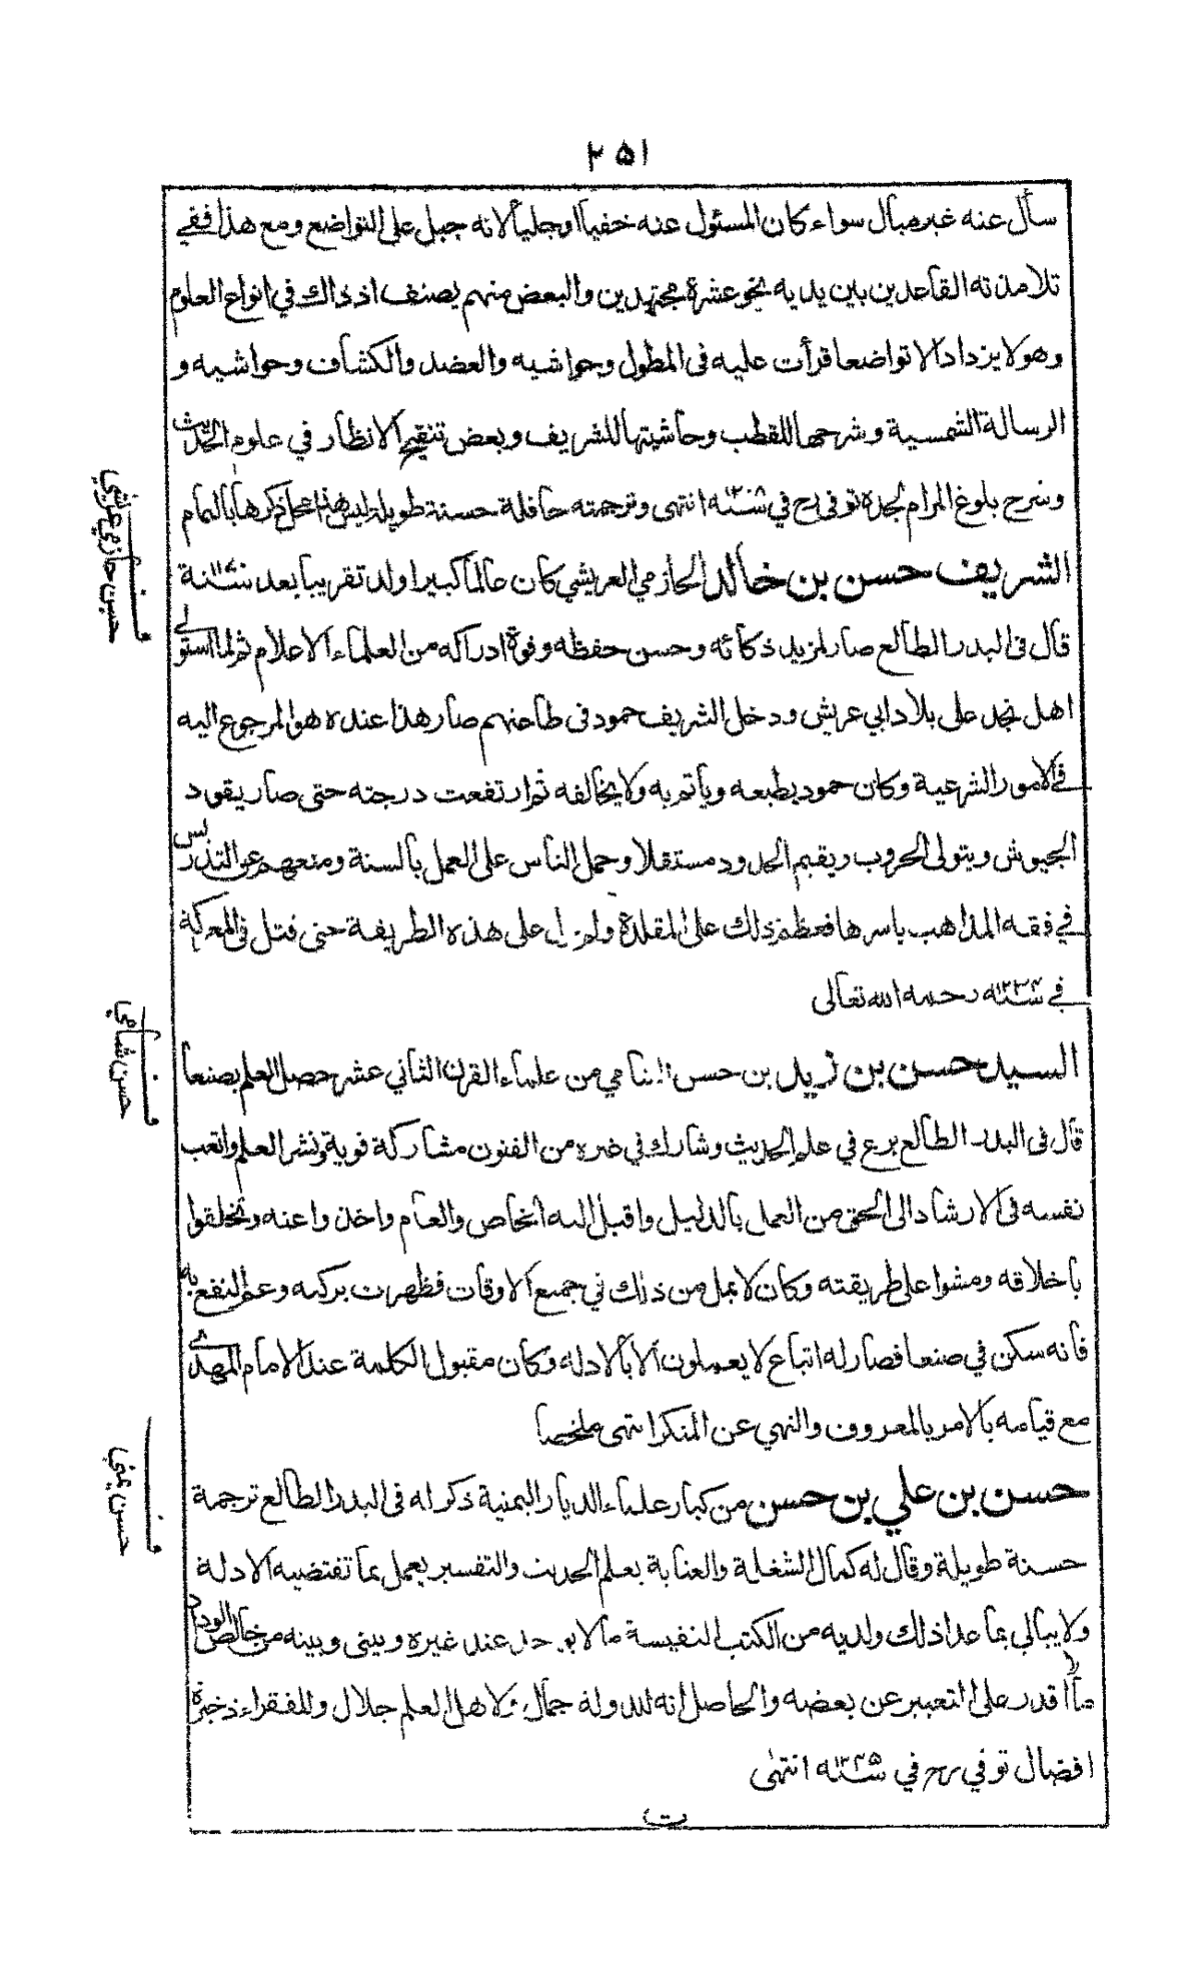 ٢٥١
سأل عنه غير مبال سواء كان المسئول عنه خفيا اوجليا لانه جبل على التواضع ومع هذا ففي
تلامذته القاعدين بين يديه نحو عشرة مجتهدين والبعض منهم يصنف اذ ذاك في انواع العلوم
وهو لا يزداد الا تواضعا قرأت عليه فى المطول وحواشيه والعضد والكشاف وحواشيه و
الرسالة الشمسية وشرحها للقطب وحاشيتها للشريف وبعض تنقيح الانظار في علوم الحديث
وشرح بلوغ المرام لجده توفى رح في سنة ١٢٠٨ انتهى وترجمته حافلة حسنة طويلة ليس هذا محل ذكرها بالتمام
الشريف حسن بن خالد الحازمي العريشي كان عالما كبيرا ولد تقريبا بعد سنة
قال فى البدر الطالع صار لمزيد ذكائه وحسن حفظه وقوة ادراكه من العلماء الاعلام ثم لما استولى
اهل نجد على بلاد ابي عريش ودخل الشريف حمود فى طاعتهم صار هذا عنده هو المرجوع اليه
في الامور الشرعية وكان حمود يطيعه ويأتم به ولا يخالفه ثم ارتفعت درجته حتى صار يقود
الجيوش ويتولى الحروب ويقيم الحدود مستقلا وحمل الناس على العمل بالسنة ومنعهم عن التدريس
في فقه المذاهب باسرها فعظم ذلك على المقلدة ولم يزل على هذه الطريقة حتى قتل فى المعركة
في سنة ١٢٣٤ رحمه الله تعالى
السيد حسن بن زيد بن حسن الشامي من علماء القرن الثاني عشر حصل العلم بصنعا
قال فى البدر الطالع برع في علم الحديث وشارك في غيره من الفنون مشاركة قوية ونشر العلم واتعب
نفسه فى الارشاد الى الحق من العمل بالدليل واقبل اليه الخاص والعام واخذوا عنه وتخلقوا
باخلاقه ومشوا على طريقته وكان لا يمل من ذلك في جميع الاوقات فظهرت بركته وعم النفع به
فانه سكن في صنعا فصار له اتباع لا يعملون الا بالادلة وكان مقبول الكلمة عند الامام المهدي
مع قيامه بالامر بالمعروف والنهي عن المنكر انتهى ملخصا
حسن بن علي بن حسن من كبار علماء الديار اليمنية ذكر له فى البدر الطالع ترجمة
حسنة طويلة وقال له كمال الشغلة والعناية بعلم الحديث والتفسير يعمل بما تقتضيه الادلة
ولا يبالي بما عدا ذلك ولديه من الكتب النفيسة ما لا يوجد عند غيره وبيني وبينه من خالص الوداد
ما لا اقدر على التعبير عن بعضه والحاصل انه للدولة جمال ولاهل العلم جلال وللفقراء ذخيرة
افضال توفي رح في سنة ١٢٢٥ انتهى
ف
حسن حازمي عريشي
ف
حسن شامي
ف
حسن يمني